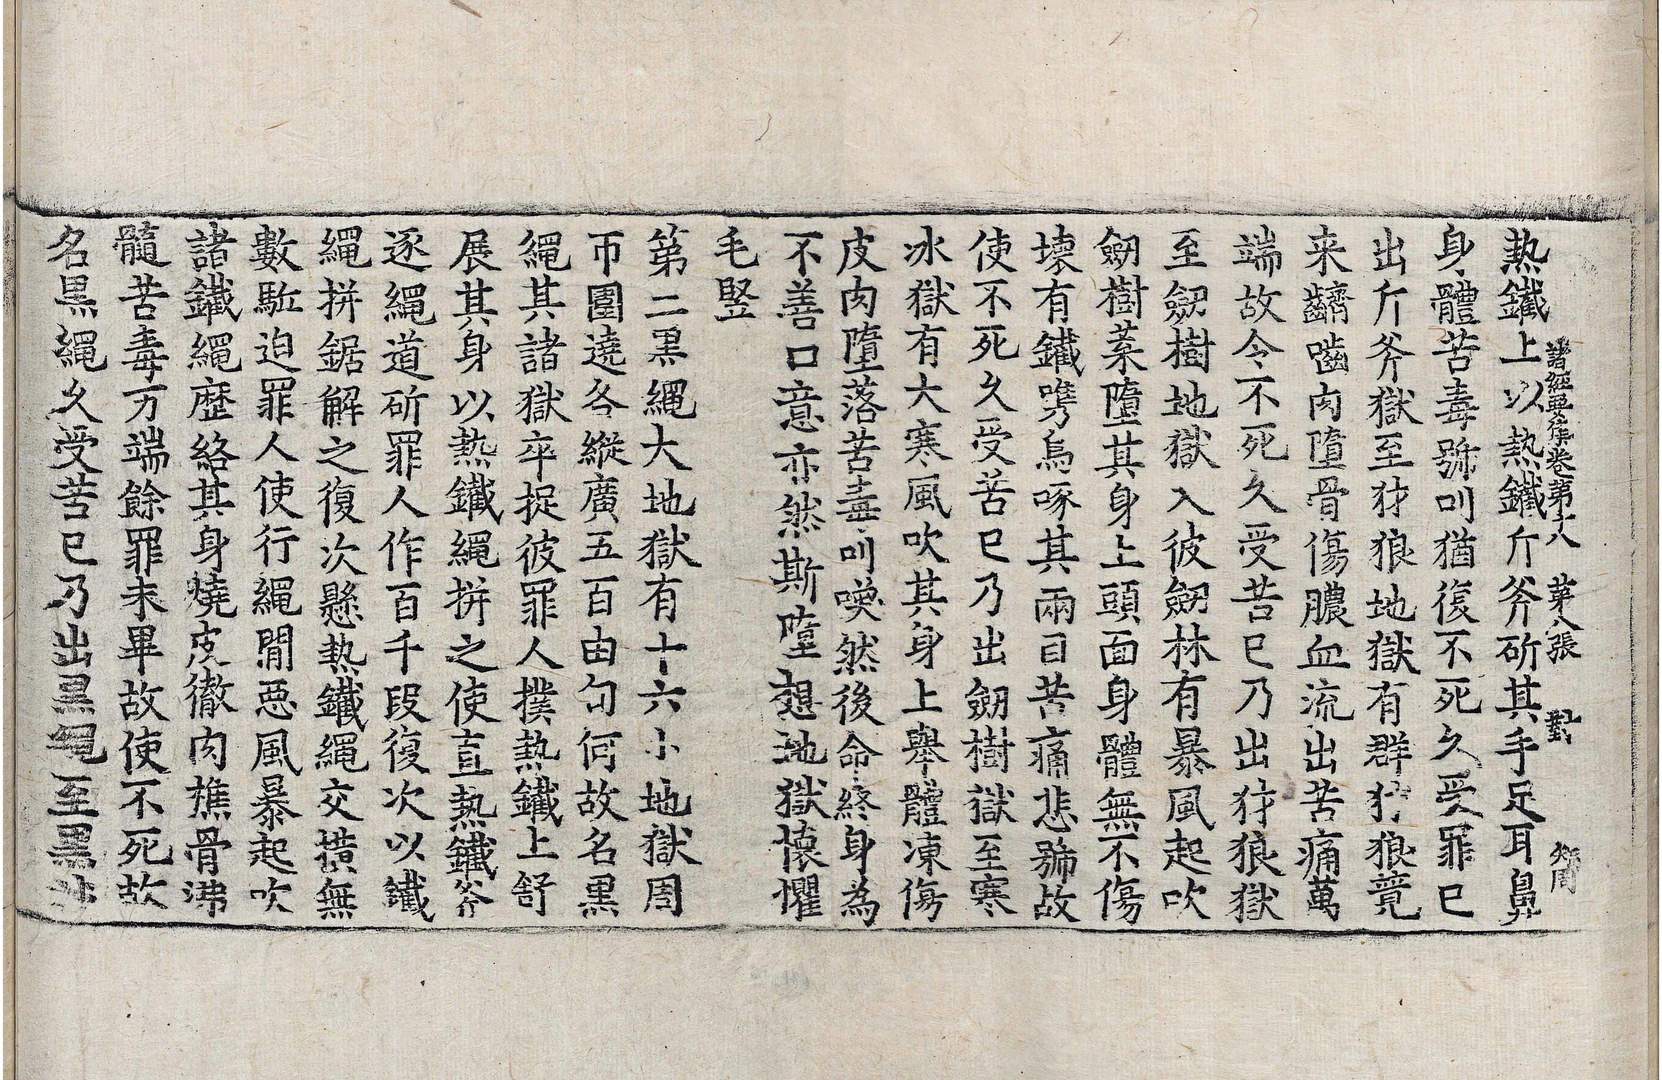 諸經要集卷第十八 茅八張 對 矧周
熱鐵上以熱鐵斤斧斫其手足耳鼻
身體苦毒號叫猶復不死久受罪已
出斤斧獄至犲狼地獄有群犲狼竟
来齩齧肉墮骨傷膿血流出苦痛萬
端故令不死久受苦已乃出犲狼獄
至劒樹地獄入彼劒林有暴風起吹
劒樹葉墮其身上頭面身體無不傷
壞有鐵㗛鳥啄其兩目苦痛悲號故
使不死久受苦已乃出劒樹獄至寒
冰獄有大寒風吹其身上舉體凍傷
皮肉墮落苦毒叫喚然後命終身為
不善口意亦然斯墮想地獄懷懼
毛竪
第二黒繩大地獄有十六小地獄周
帀圍遶各縱廣五百由旬何故名黒
繩其諸獄卒捉彼罪人撲熱鐵上舒
展其身以熱鐵繩拼之使直熱鐵斧
逐繩道斫罪人作百千段復次以鐵
繩拼鋸解之復次懸熱鐵繩交撗無
數駈迫罪人使行繩間惡風暴起吹
諸鐵繩歷絡其身燒皮徹肉燋骨沸
髓苦毒万端餘罪未畢故使不死故
名黒繩久受苦已乃出黒繩至黒沙